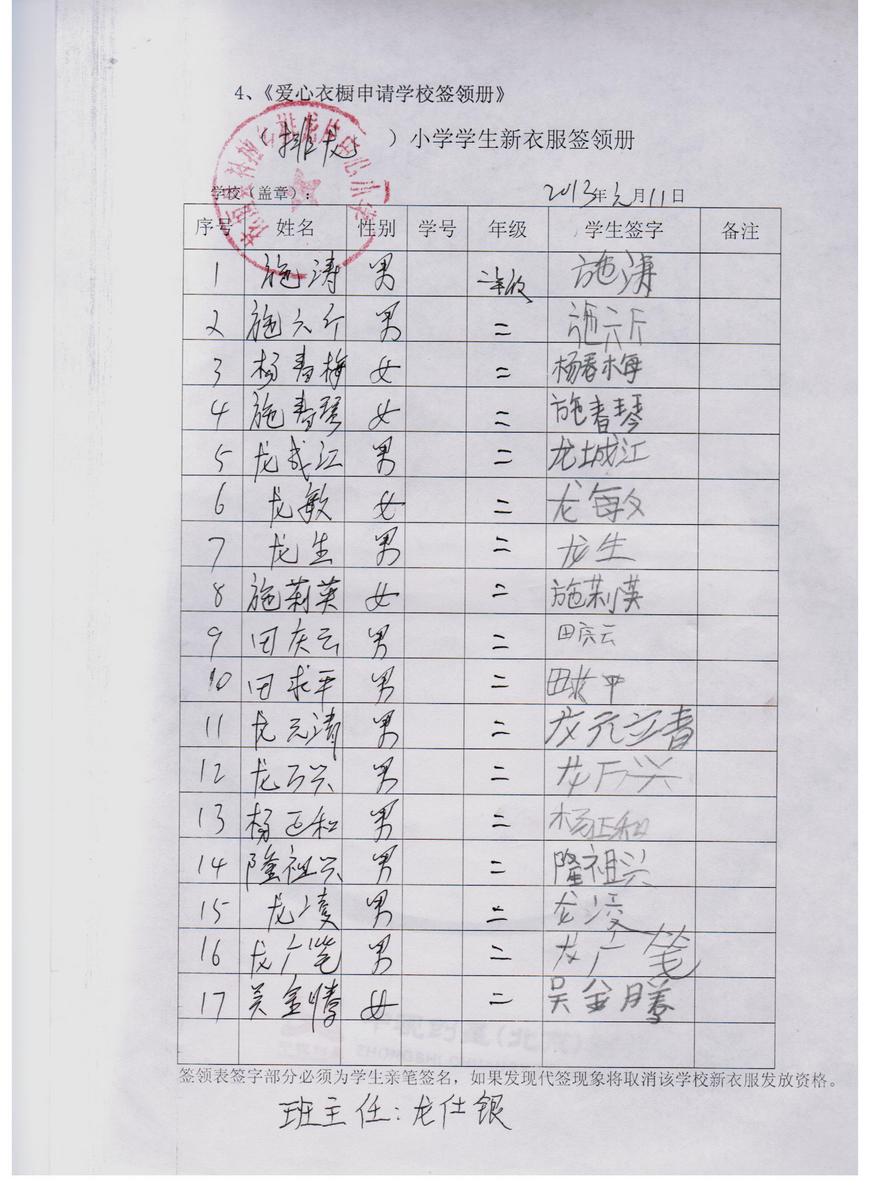 4、《爱心衣橱申请学校签领册》
（排龙 ）小学学生新衣服签领册
学校（盖章）： 2013年元月11日
序号 姓名 性别 学号 年级 学生签字 备注
1 施涛 男 二年级 施涛
2 施六斤 男 二 施六斤
3 杨春梅 女 二 杨春梅
4 施春琴 女 二 施春琴
5 龙成江 男 二 龙城江
6 龙敏 女 二 龙敏
7 龙生 男 二 龙生
8 施莉英 女 二 施莉英
9 田庆云 男 二 田庆云
10 田求平 男 二 田求平
11 龙元清 男 二 龙元清
12 龙万兴 男 二 龙万兴
13 杨正和 男 二 杨正和
14 隆祖兴 男 二 隆祖兴
15 龙凌 男 二 龙凌
16 龙广笔 男 二 龙广笔
17 吴金 女 二 吴金
签领表签字部分必须为学生亲笔签名，如果发现代签现象将取消该学校新衣服发放资格。
班主任：龙仕银